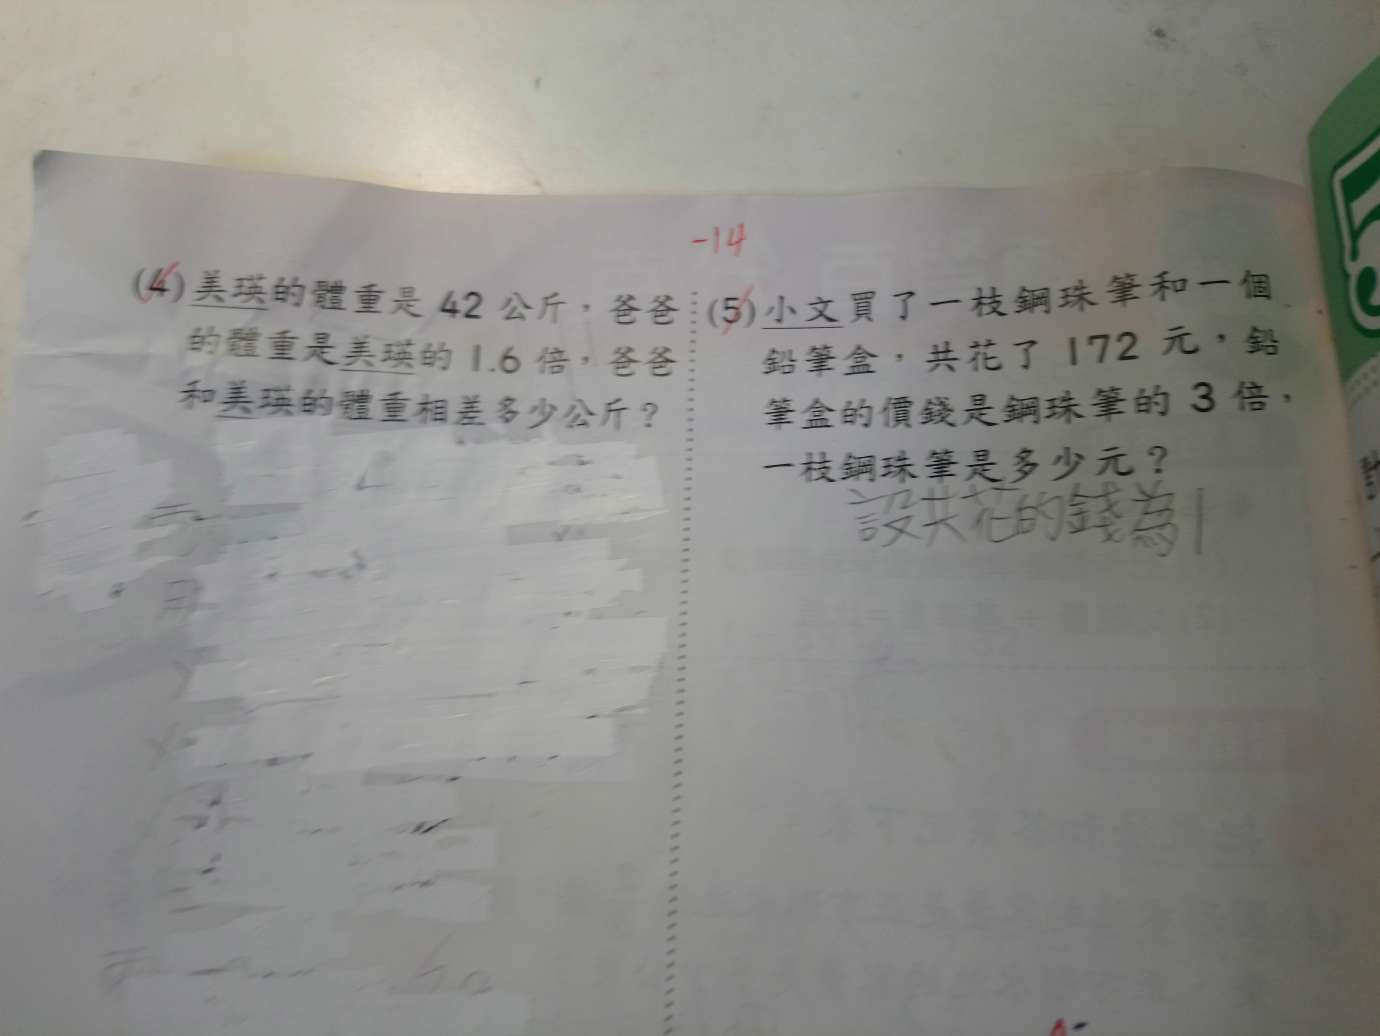 -14
(4)美瑛的體重是 42 公斤，爸爸
的體重是美瑛的 1.6 倍，爸爸
和美瑛的體重相差多少公斤？
(5)小文買了一枝鋼珠筆和一個
鉛筆盒，共花了 172 元，鉛
筆盒的價錢是鋼珠筆的 3 倍，
一枝鋼珠筆是多少元？
設共花的錢為1
5